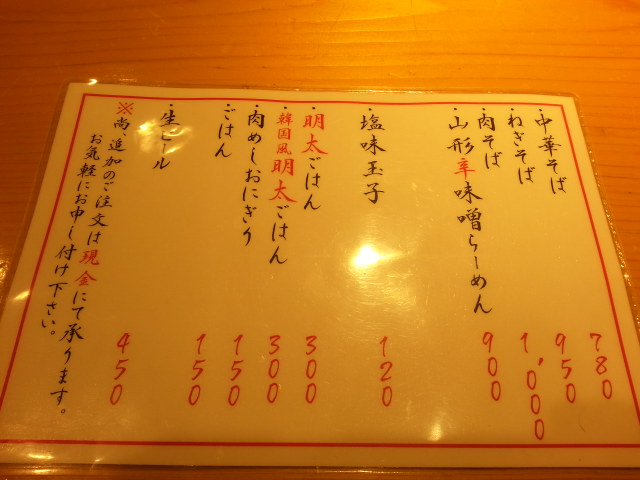 ・中華そば 780
・ねぎそば 950
・肉そば 1,000
・山形辛味噌らーめん 900
・塩味玉子 120
・明太ごはん 300
・韓国風明太ごはん 300
・肉めしおにぎり 150
・ごはん 150
・生ビール 450
※尚、追加のご注文は現金にて承ります。
お気軽にお申し付け下さい。